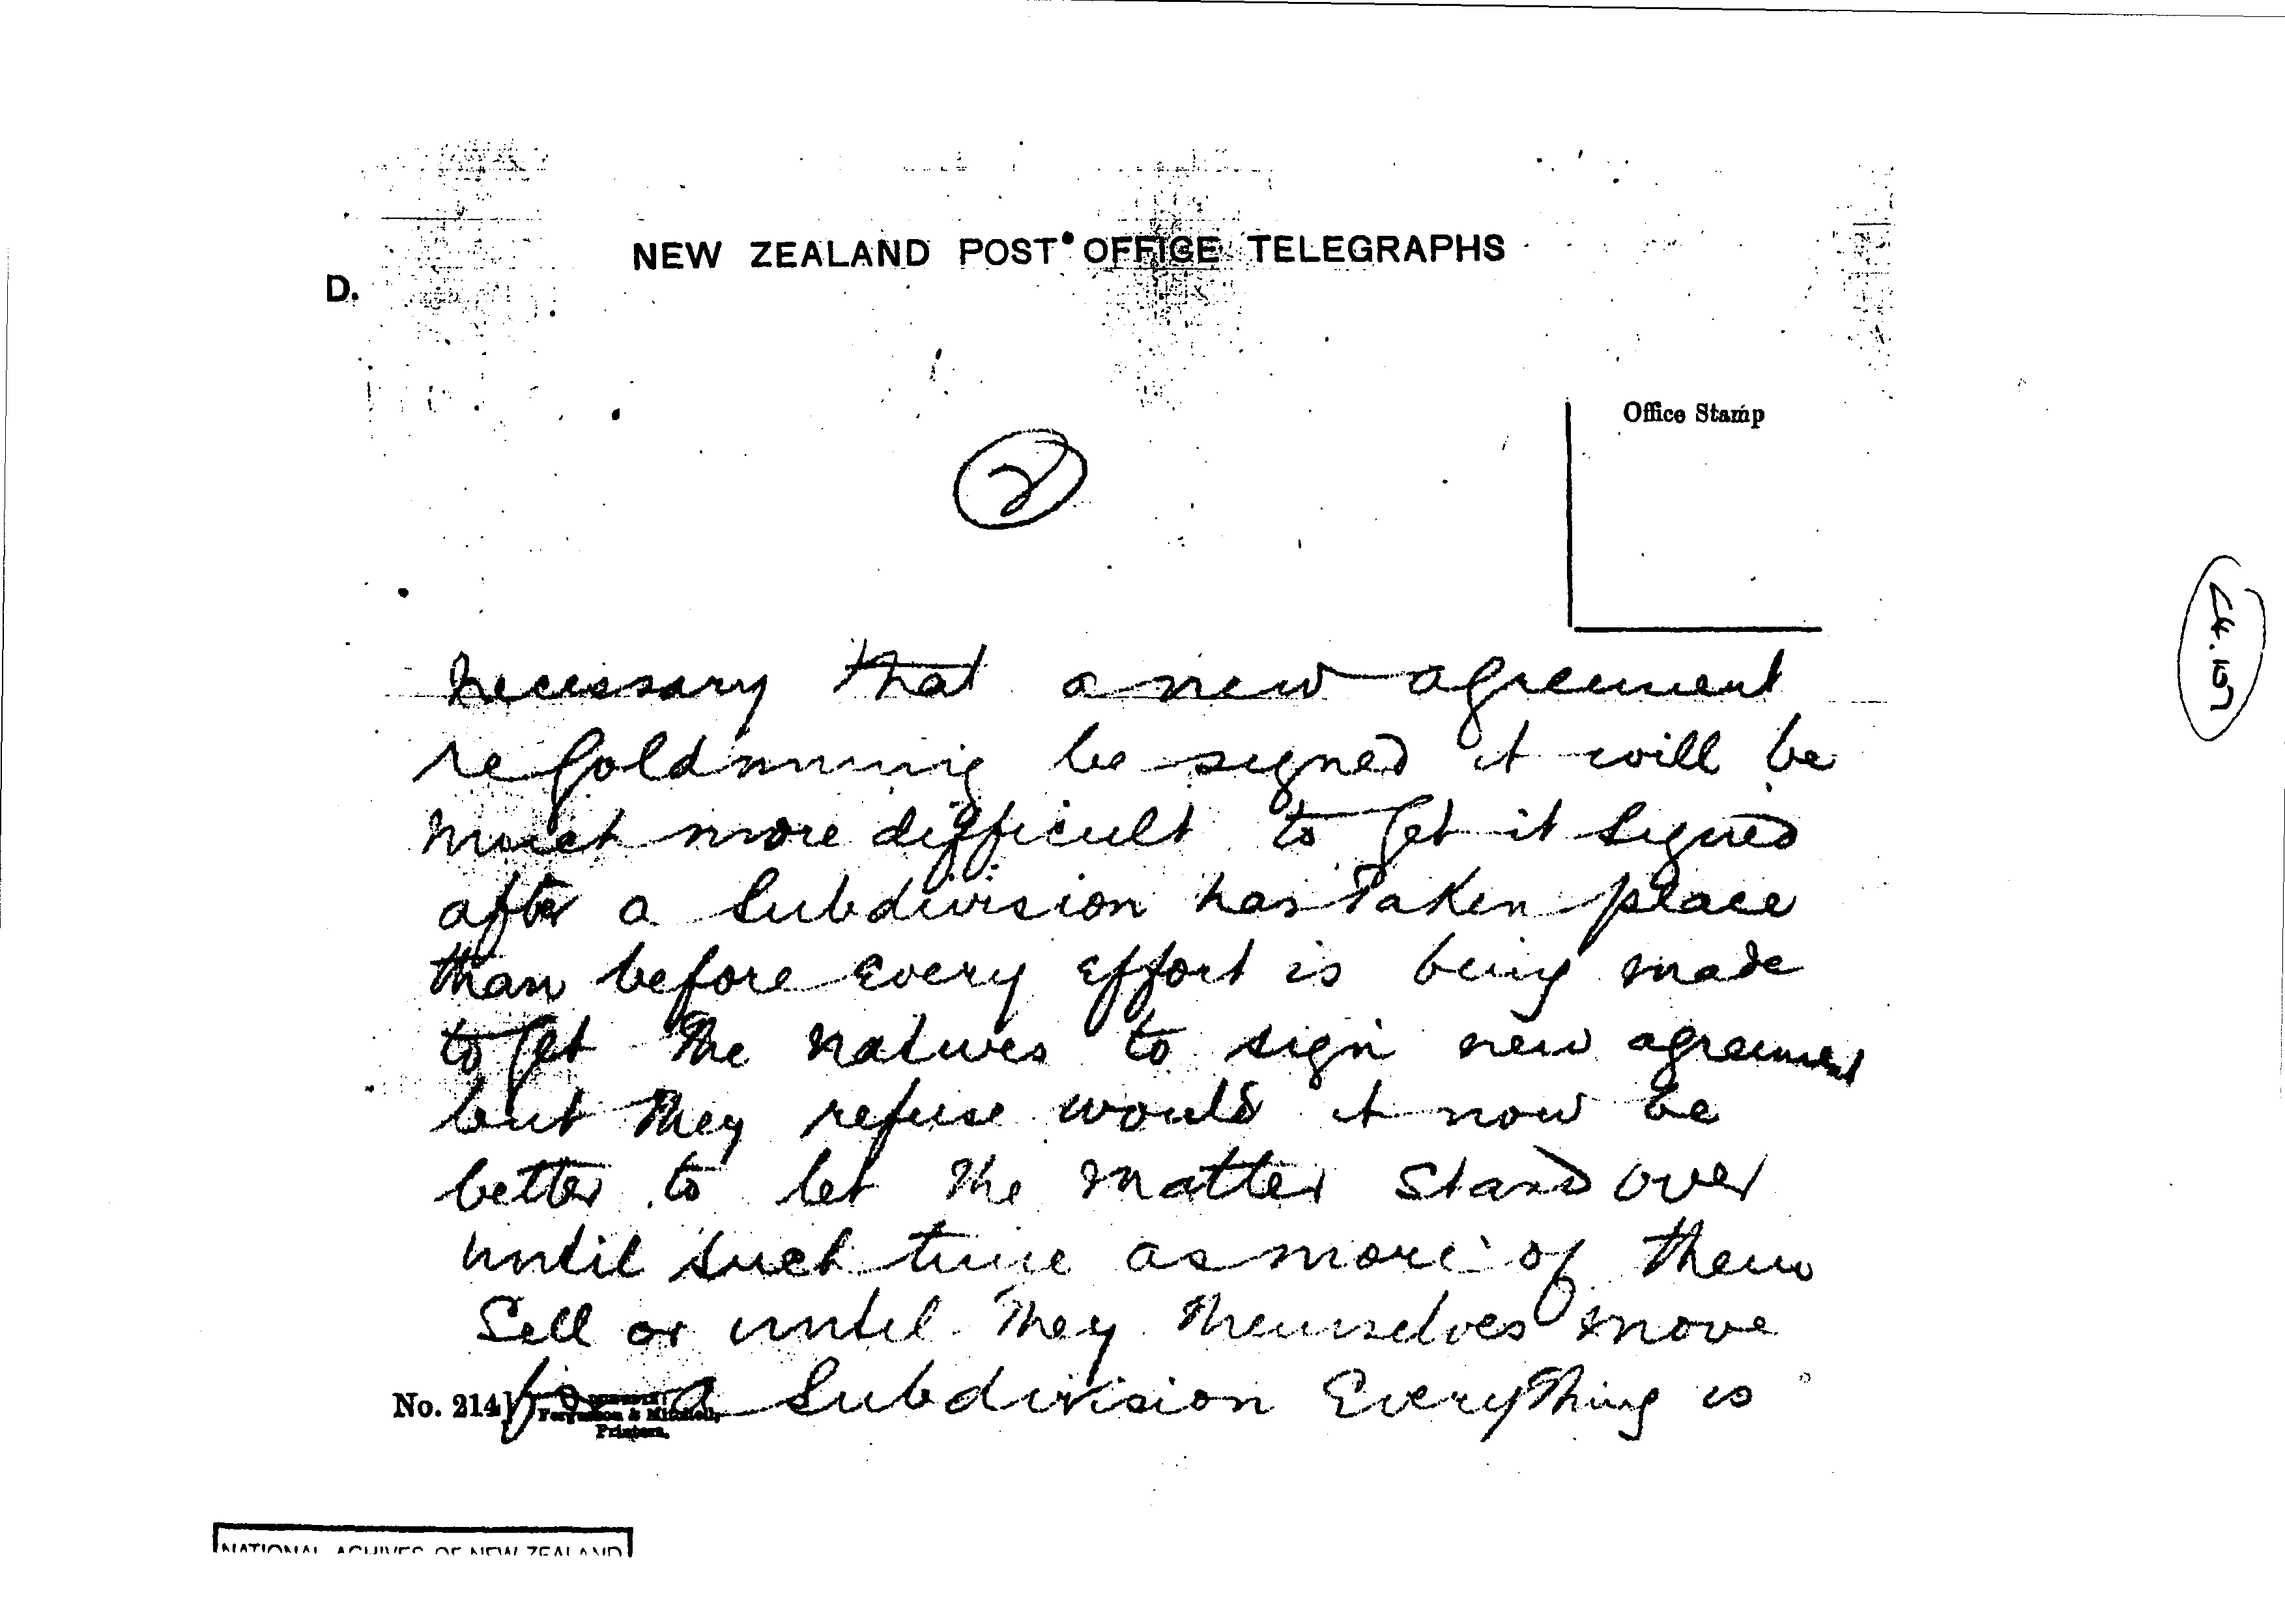 NEW ZEALAND POST OFFICE TELEGRAPHS
D.
Office Stamp
2
necessary that a new agreement
re Goldmining be signed it will be
much more difficult to get it signed
after a Subdivision has taken place
than before Every Effort is being made
to get the natives to sign new agreement
but they refuse would it now be
better to let the matter stand over
until such time as more of them
Sell or until they themselves move
for a Subdivision Everything is
No. 214]
Ferguson & Mitchell,
Printers.
NATIONAL ACHIVES OF NEW ZEALAND